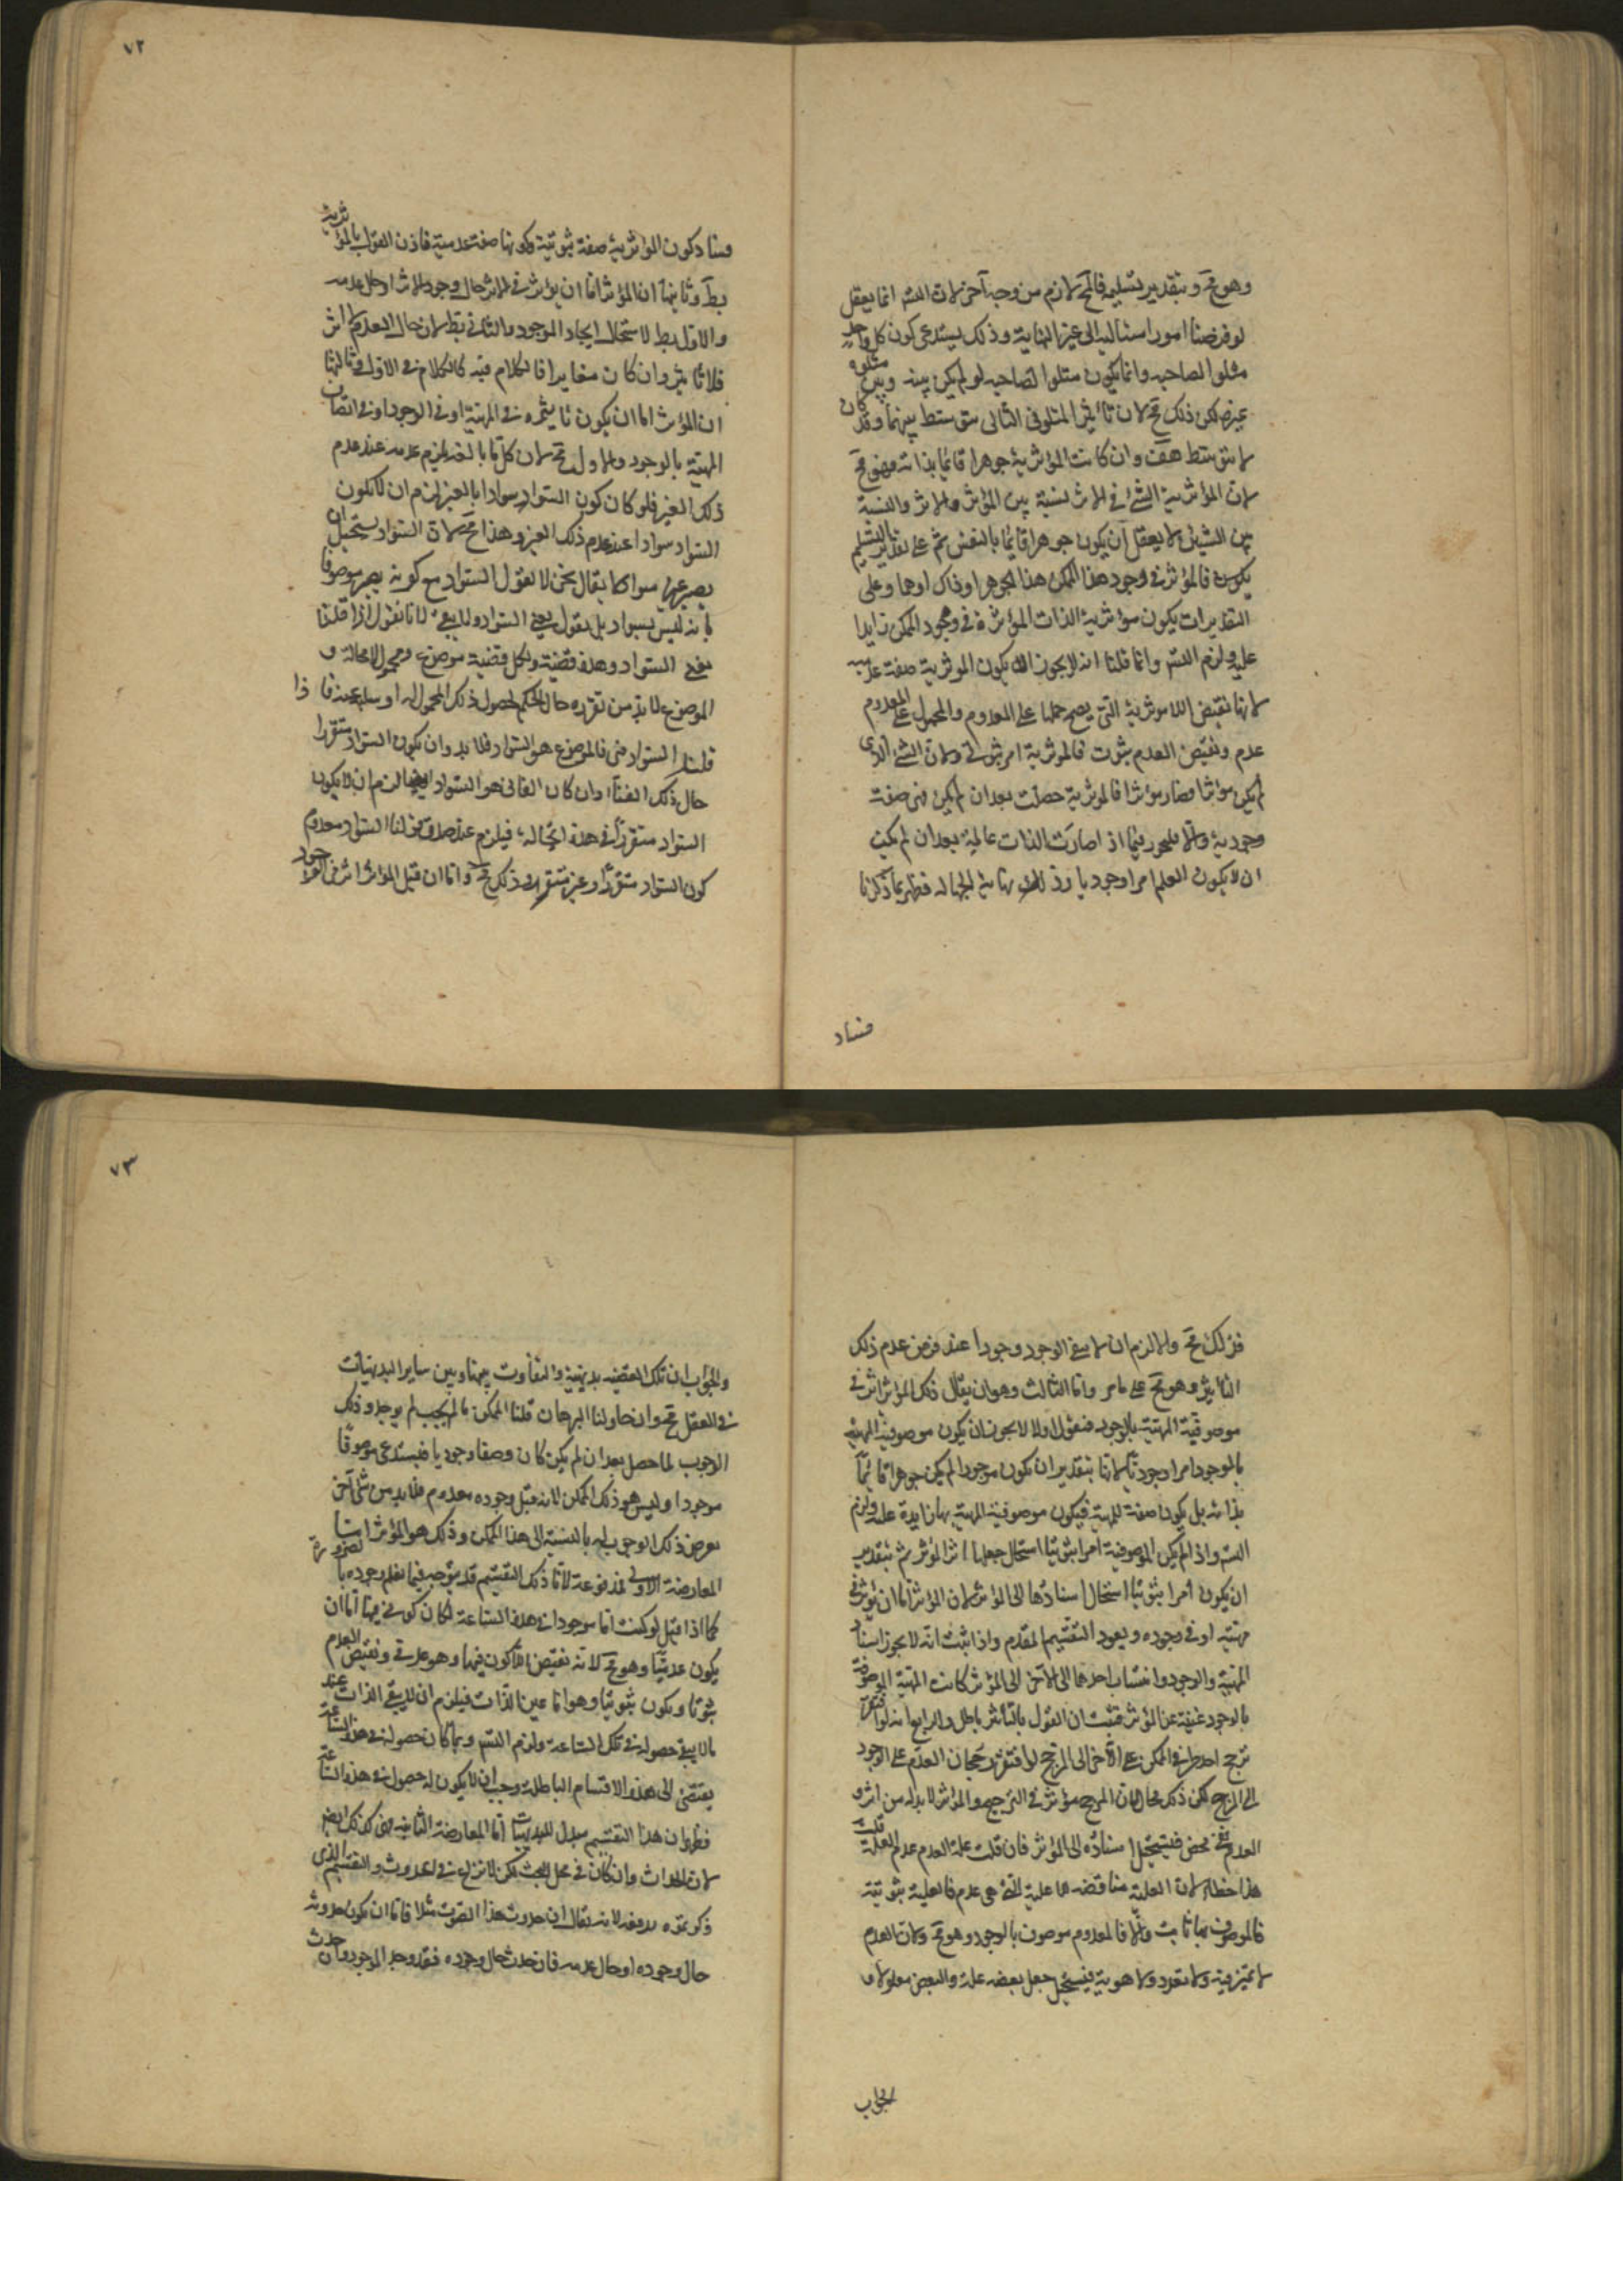 وهو مح وبتقدير تسليمه فالمح لازم من وجه آخر لان التس انما يعقل
لو فرضنا امورا متتالية الى غير النهاية وذلك يستدعى كون كل واحد
متلوا لصاحبه وانما يكون متلوا لصاحبه لو لم يكن بينه وبين متلوه
غيره لكن ذلك مح لان تأثير المتلو فى التالى متوسط بينهما وقد كان
لا متوسط هف وان كانت المؤثرية جوهرا قائما بذاته فهو مح
لان المؤثرية الشئ فى الاثر نسبة بين المؤثر والاثر والنسبة
بين الشيئين لا يعقل ان يكون جوهرا قائما بالنفس ثم على تقدير التسليم
يكون فالمؤثر فى وجود هذا الممكن هذا الجوهر او ذاك اوهما وعلى
التقديرات يكون مؤثرية الذات المؤثرة فى وجود الممكن زايدا
عليه ولزم التس وانما قلنا انه لا يجوز ان يكون المؤثرية صفة عدمية
لانها نقيض اللامؤثرية التى يصح حملها على المعدوم والمحمول على المعدوم
عدم ونقيض العدم ثبوت فالمؤثرية امر ثبوتى ولان الشئ الذى
لم يكن مؤثرا فصار مؤثرا فالمؤثرية حصلت بعد ان لم يكن فهى صفة
وجودية والا فليجوز فيما اذا صارت الذات عالمة بعد ان لم يكن
ان لا يكون العلم امرا وجوديا وذلك نهاية الجهالة فظهر بما ذكرنا
فساد
٧٢
فساد كون المؤثرية صفة ثبوتية وكونها صفة عدمية فاذن القول بالمؤثرية
بط وثانيها ان المؤثر اما ان يؤثر فى الاثر حال وجود الاثر او حال عدمه
والاول بط لاستحالة ايجاد الموجود والثانى بط لان حال العدم لا اثر
فلا تاثير وان كان مغايرا فالكلام فيه كالكلام فى الاول وثالثها
ان المؤثر اما ان يكون تاثيره فى المهية او فى الوجود او فى اتصاف
المهية بالوجود والاول مح لان كل ما بالغير يلزم عدمه عند عدم
ذلك الغير فلو كان كون السواد سوادا بالغير لزم ان لا يكون
السواد سوادا عند عدم ذلك الغير وهذا مح لان السواد يستحيل ان
يصير غير سواد لا يقال نحن لا نقول السواد مع كونه يصير موصوفا
بانه ليس بسواد بل نقول يفنى السواد ولا يبقى لانا نقول اذا قلنا
يفنى السواد وهذه قضية ولكل قضية موضوع ومحمول لا محالة و
الموضوع لا بد من تقرره حال الحكم لحصول ذلك المحمول له او سلبه عنه فاذا
قلنا السواد فنى فالموضوع هو السواد فلا بد وان يكون السواد متقررا
حال ذلك الفناء وان كان الفانى هو السواد ايضا لزم ان لا يكون
السواد متقررا فى هذه الحالة فيلزم عند صدق قولنا السواد معدوم
كون السواد متقررا وغير متقرر وذلك مح واما ان قيل المؤثر اثر فى الوجود
فذلك مح والا لزم ان لا يبقى الوجود وجودا عند فرض عدم ذلك
التاثير وهو مح على ما مر واما الثالث وهو ان يقال ذلك المؤثر اثر فى
موصوفية المهية بالوجود فنقول اولا لا يجوز ان يكون موصوفية المهية
بالوجود امرا وجوديا لانها بتقدير ان يكون موجودا لم يكن جوهرا قائما
بذاته بل يكون صفة للمهية فيكون موصوفية المهية بها زايدة عليه ولزم
التس واذا لم يكن الموصوفية امرا ثبوتيا استحال جعلها اثرا للمؤثر ثم بتقدير
ان يكون امرا ثبوتيا استحال اسنادها الى المؤثر لان المؤثر اما ان يؤثر فى
مهيته او فى وجوده ويعود التقسيم المقدم واذا ثبت انه لا يجوز اسناد
المهية والوجود وانتساب احدهما الى الآخر الى المؤثر كانت المهية الموصوفة
بالوجود غنية عن المؤثر فثبت ان القول بالتاثير باطل والرابع انه لو افتقر
ترجح احد طرفى الممكن على الآخر الى المرجح لافتقر رجحان العدم على الوجود
الى المرجح لكن ذلك محال لان المرجح مؤثر فى الترجيح والمؤثر لا بد له من اثر و
العدم نفى محض فيستحيل اسناده الى المؤثر فان قلت علة العدم عدم العلة قلت
هذا خطا لان العلية مناقضة للا علية التى هى عدم فالعلية ثبوتية
فالموصوف بها ثابت والا فالمعدوم موصوف بالوجود وهو مح ولان العدم
لا تميز فيه ولا تعدد ولا هوية فيستحيل جعل بعضه علة والبعض معلولا و
الجواب
٧٣
والجواب ان تلك القضية بديهية والتفاوت بينها وبين ساير البديهيات
فى العقل مح وان حاولنا البرهان قلنا الممكن ما لم يجب لم يوجد وذلك
الوجوب لما حصل بعد ان لم يكن كان وصفا وجوديا فيستدعى موصوفا
موجودا وليس هو ذلك الممكن لانه قبل وجوده معدوم فلا بد من شئ آخر
يعرض ذلك الوجوب له بالنسبة الى هذا الممكن وذلك هو المؤثر اما
المعارضة الاولى فمدفوعة لان ذلك التقسيم قد يتوجه فيما نعلم وجوده بالضرورة
كما اذا قيل لو كنت انا موجودا فى هذه الساعة لكان كونى فيها اما ان
يكون عدميا وهو مح لانه نقيض اللاكون فيها وهو عدمى ونقيض العدم
ثبوت او يكون ثبوتيا وهو اما عين الذات فيلزم ان لا يبقى الذات عند
ما لا يبقى حصوله فى تلك الساعة ولزم التس وبما كان حصوله فى هذه الساعة
يفضى الى هذه الاقسام الباطلة وجب ان لا يكون له حصول فى هذه الساعة
فظهر ان هذا التقسيم مبطل للبديهيات اما المعارضة الثانية فهى كذلك ايضا
لان الحداث وان كان فى محل البحث لكن لا نزاع فى الحدوث والتقسيم الذى
ذكرتموه يدفعه لانه يقال ان حدوث هذا الصوت مثلا فاما ان يكون حدوثه
حال وجوده او حال عدمه فان حدث حال وجوده فقد وجد الموجود وان حدث